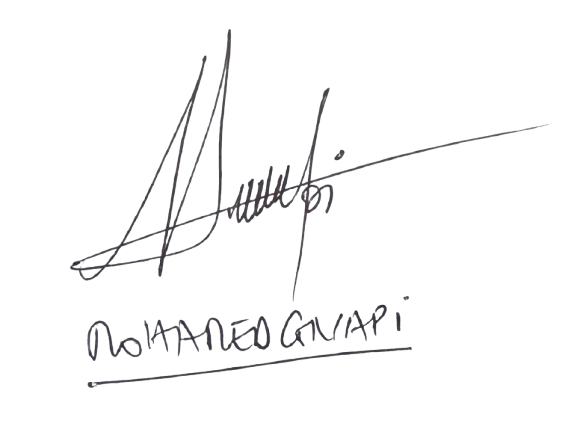 MOHAMED GNAPI